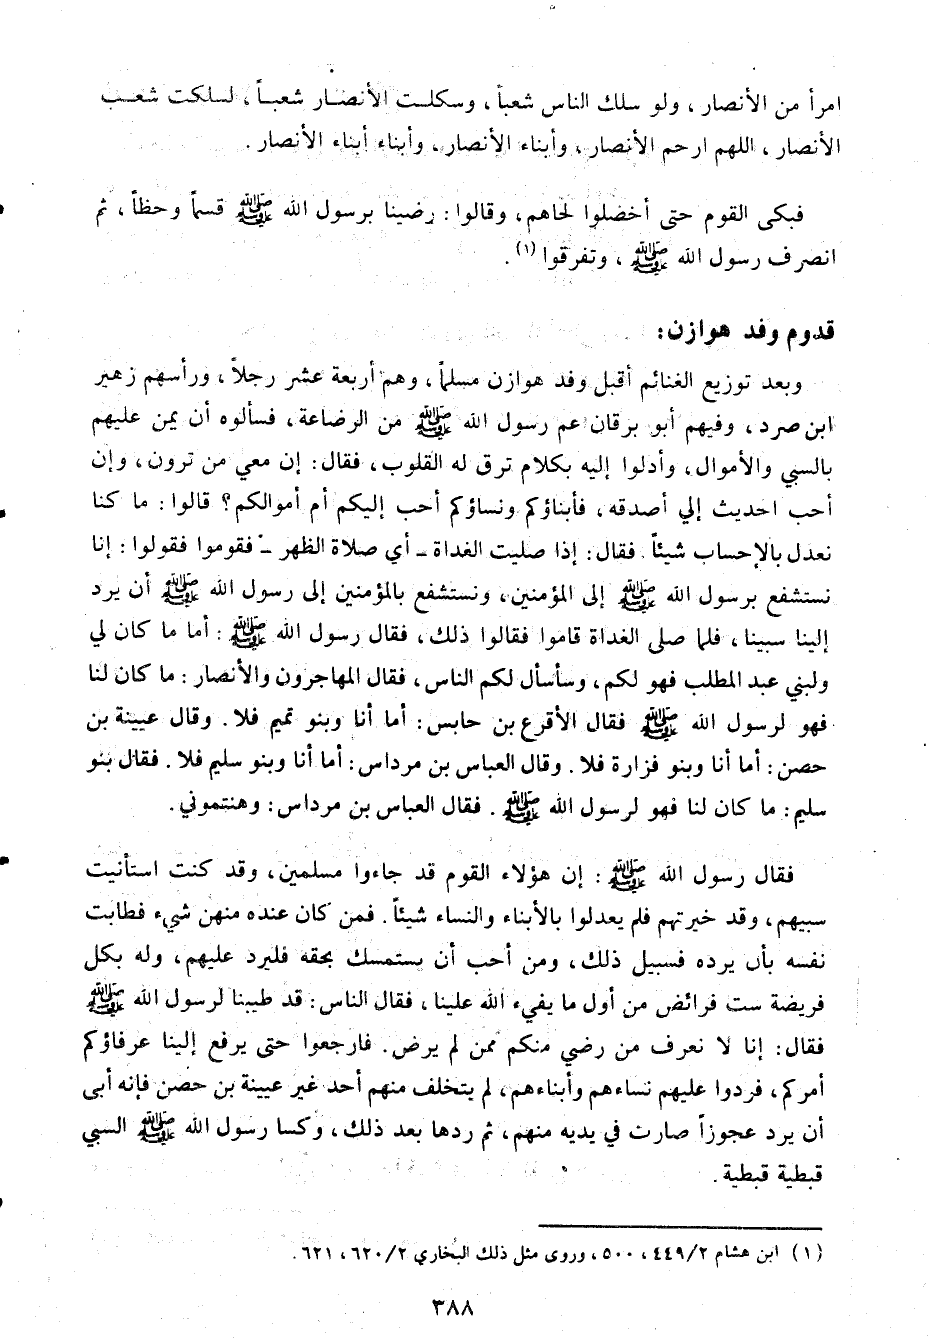 امرأ من الأنصار ، ولو سلك الناس شعباً ، وسكلت الأنصار شعباً ، لسلكت شعب
الأنصار ، اللهم ارحم الأنصار ، وأبناء الأنصار ، وأبناء أبناء الأنصار .
فبكى القوم حتى أخضلوا لحاهم ، وقالوا : رضينا برسول الله ﷺ قسماً وحظاً ، ثم
انصرف رسول الله ﷺ ، وتفرقوا (١) .
قدوم وفد هوازن:
وبعد توزيع الغنائم أقبل وفد هوازن مسلماً ، وهم أربعة عشر رجلاً ، ورأسهم زهير
ابن صرد ، وفيهم أبو برقان عم رسول الله ﷺ من الرضاعة ، فسألوه أن يمن عليهم
بالسبي والأموال ، وأدلوا إليه بكلام ترق له القلوب ، فقال : إن معي من ترون ، وإن
أحب الحديث إلي أصدقه ، فأبناؤكم ونساؤكم أحب إليكم أم أموالكم؟ قالوا : ما كنا
نعدل بالإحساب شيئاً . فقال : إذا صليت الغداة ـ أي صلاة الظهر ـ فقوموا فقولوا : إنا
نستشفع برسول الله ﷺ إلى المؤمنين ، ونستشفع بالمؤمنين إلى رسول الله ﷺ أن يرد
إلينا سبينا ، فلما صلى الغداة قاموا فقالوا ذلك ، فقال رسول الله ﷺ : أما ما كان لي
ولبني عبد المطلب فهو لكم ، وسأسأل لكم الناس ، فقال المهاجرون والأنصار : ما كان لنا
فهو لرسول الله ﷺ فقال الأقرع بن حابس : أما أنا وبنو تميم فلا . وقال عيينة بن
حصن : أما أنا وبنو فزارة فلا . وقال العباس بن مرداس : أما أنا وبنو سليم فلا . فقال بنو
سليم : ما كان لنا فهو لرسول الله ﷺ . فقال العباس بن مرداس : وهنتموني .
فقال رسول الله ﷺ : إن هؤلاء القوم قد جاءوا مسلمين ، وقد كنت استأنيت
سبيهم ، وقد خيرتهم فلم يعدلوا بالأبناء والنساء شيئاً . فمن كان عنده منهن شيء فطابت
نفسه بأن يرده فسبيل ذلك ، ومن أحب أن يستمسك بحقه فليرد عليهم ، وله بكل
فريضة ست فرائض من أول ما يفيء الله علينا ، فقال الناس : قد طيبنا لرسول الله ﷺ
فقال : إنا لا نعرف من رضي منكم ممن لم يرض . فارجعوا حتى يرفع إلينا عرفاؤكم
أمركم ، فردوا عليهم نساءهم وأبناءهم ، لم يتخلف منهم أحد غير عيينة بن حصن فإنه أبى
أن يرد عجوزاً صارت في يديه منهم ، ثم ردها بعد ذلك ، وكسا رسول الله ﷺ السبي
قبطية قبطية .
(١) ابن هشام ٤٤٩/٢ ، ٥٠٠ ، وروى مثل ذلك البخاري ٦٢٠/٢ ، ٦٢١ .
٣٨٨